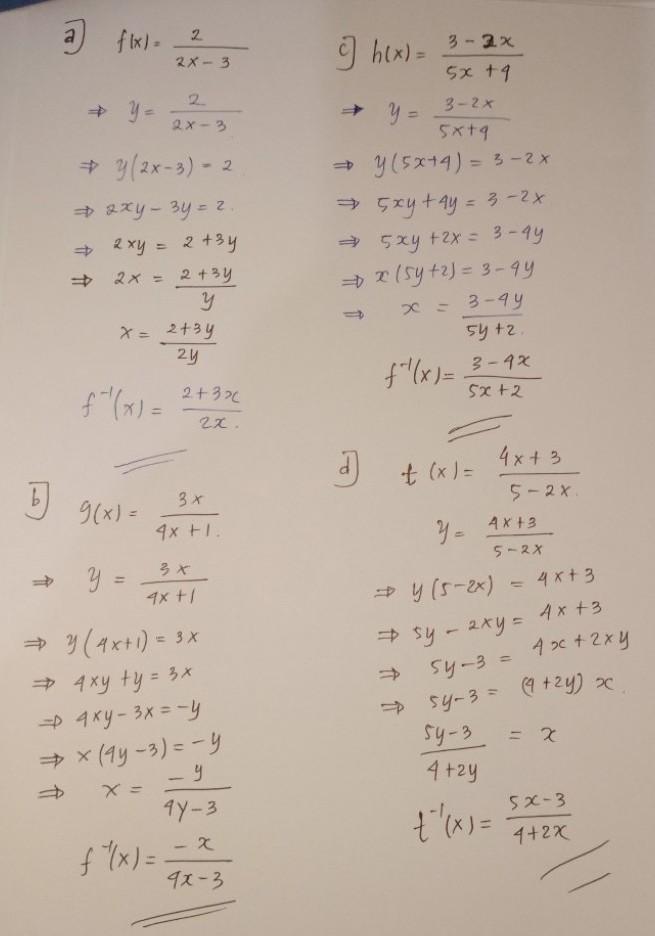 a) f(x) = 2 / (2x - 3)
⇒ y = 2 / (2x - 3)
⇒ y(2x-3) = 2
⇒ 2xy - 3y = 2.
⇒ 2xy = 2 + 3y
⇒ 2x = (2 + 3y) / y
x = (2+3y) / 2y
f⁻¹(x) = (2+3x) / 2x.
b) g(x) = 3x / (4x + 1).
⇒ y = 3x / (4x + 1)
⇒ y(4x+1) = 3x
⇒ 4xy + y = 3x
⇒ 4xy - 3x = -y
⇒ x(4y-3) = -y
⇒ x = -y / (4y-3)
f⁻¹(x) = -x / (4x-3)
c) h(x) = (3 - 2x) / (5x + 4)
⇒ y = (3-2x) / (5x+4)
⇒ y(5x+4) = 3-2x
⇒ 5xy + 4y = 3-2x
⇒ 5xy + 2x = 3-4y
⇒ x(5y+2) = 3-4y
⇒ x = (3-4y) / (5y+2).
f⁻¹(x) = (3-4x) / (5x+2)
d) t(x) = (4x + 3) / (5-2x).
y = (4x+3) / (5-2x)
⇒ y(5-2x) = 4x+3
⇒ 5y - 2xy = 4x+3
⇒ 5y-3 = 4x+2xy
⇒ 5y-3 = (4+2y) x.
(5y-3) / (4+2y) = x
t⁻¹(x) = (5x-3) / (4+2x)